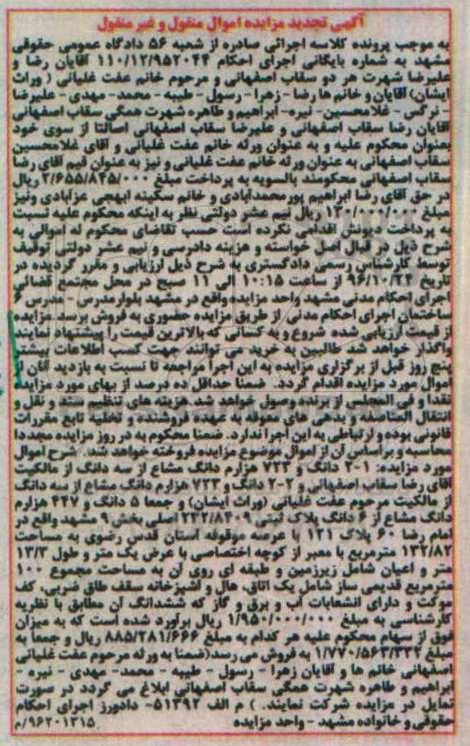 آگهی تجدید مزایده اموال منقول و غیر منقول
به موجب پرونده کلاسه اجرائی صادره از شعبه ۵۶ دادگاه عمومی حقوقی
مشهد به شماره بایگانی اجرای احکام ۱۱۰/۱۲/۹۵۲۰۴۴ آقایان رضا و
علیرضا شهرت هر دو سقاب اصفهانی و مرحوم خانم عفت غلیانی ( وراث
ایشان) آقایان و خانم ها رضا - زهرا - رسول - طیبه - محمد- مهدی - علیرضا
- نرگس - غلامحسین- نیره- ابراهیم و طاهره شهرت همگی سقاب اصفهانی
آقایان رضا سقاب اصفهانی و علیرضا سقاب اصفهانی اصالتا از سوی خود
بعنوان محکوم علیه و به عنوان ورثه خانم عفت غلیانی و آقای غلامحسین
سقاب اصفهانی به عنوان ورثه خانم عفت غلیانی و نیز به عنوان قیم آقای رضا
سقاب اصفهانی محکومند بالسویه به پرداخت مبلغ ۲/۶۵۵/۸۴۵/۰۰۰ ریال
در حق آقای رضا ابراهیم پورمحمدآبادی و خانم سکینه ابهجی عزآبادی ونیز
مبلغ ریال نیم عشر دولتی نظر به اینکه محکوم علیه نسبت
به پرداخت دیونش اقدامی نکرده است حسب تقاضای محکوم له اموالی به
شرح ذیل در قبال اصل خواسته و هزینه دادرسی و نیم عشر دولتی توقیف
توسط کارشناس رسمی دادگستری به شرح ذیل ارزیابی و مقرر گردیده در
تاریخ ۹۶/۱۰/۲۴ از ساعت ۱۰:۱۵ الی ۱۱ صبح در محل مجتمع قضائی
اجرای احکام مدنی مشهد واحد مزایده واقع در مشهد بلوارمدرس - مدرس ۶
ساختمان اجرای احکام مدنی از طریق مزایده حضوری به فروش برسد.مزایده
از قیمت ارزیابی شده شروع و به کسانی که بالاترین قیمت را پیشنهاد نمایند
واگذار خواهد شد طالبین به خرید می توانند جهت کسب اطلاعات بیشتر
پنج روز قبل از برگزاری مزایده به این اجرا مراجعه تا نسبت به بازدید آنان از
اموال مورد مزایده اقدام گردد. ضمنا حداقل ده درصد از بهای مورد مزایده
نقدا و فی المجلس از برنده وصول خواهد شد.هزینه های تنظیم سند و نقل و
انتقال المناصفه و بدهی های معوقه به عهده فروشنده و تخلیه تابع مقررات
قانونی بوده و ارتباطی به این اجرا ندارد. ضمنا محکوم به در روز مزایده مجددا
محاسبه و براساس آن از اموال موضوع مزایده فروخته خواهد شد. شرح اموال
مورد مزایده: ۱-۲ دانگ و ۷۲۳ هزارم دانگ مشاع از سه دانگ از مالکیت
آقای رضا سقاب اصفهانی و ۲-۲ دانگ و ۷۲۳ هزارم دانگ مشاع از سه دانگ
از مالکیت مرحوم عفت غلیانی (وراث ایشان) و جمعا ۵ دانگ و ۴۴۷ هزارم
دانگ مشاع از ۶ دانگ پلاک ثبتی ۲۳۲/۸۴۰۹ اصلی بخش ۹ مشهد واقع در
امام رضا ۶۰ پلاک ۱۲۱ با عرصه موقوفه آستان قدس رضوی به مساحت
۱۳۲/۸۲ مترمربع با معبر از کوچه اختصاصی با عرض یک متر و طول ۱۳/۳
متر و اعیان شامل زیرزمین و طبقه ای روی آن به مساحت مجموع ۱۰۰
مترمربع قدیمی ساز شامل یک اتاق، هال و آشپزخانه سقف طاق ضربی، کف
موکت و دارای انشعابات آب و برق و گاز که ششدانگ آن مطابق با نظریه
کارشناسی به مبلغ ۱/۹۵۰/۰۰۰/۰۰۰ ریال برآورد شده است که به میزان
فوق از سهام محکوم علیه هر کدام به مبلغ ۸۸۵/۲۸۱/۶۶۶ ریال و جمعا به
مبلغ ۱/۷۷۰/۵۶۳/۳۳۲ به فروش می رسد(ضمنا به ورثه مرحوم عفت غلیانی
اصفهانی خانم ها و آقایان زهرا - رسول - طیبه - محمد- مهدی - نیره -
ابراهیم و طاهره شهرت همگی سقاب اصفهانی ابلاغ می گردد در صورت
تمایل در مزایده شرکت نمایند. ) م الف ۵۱۳۹۲- دادورز اجرای احکام
حقوقی و خانواده مشهد - واحد مزایده ۹۶۲۰۱۳۱۵/م